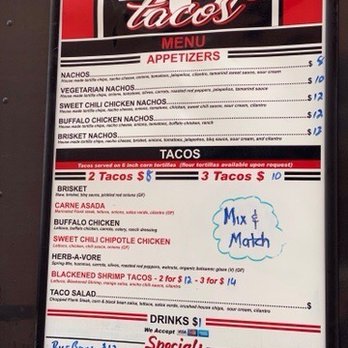 tacos
MENU
APPETIZERS
NACHOS $ 8
House made tortilla chips, nacho cheese, onions, tomatoes, jalapeños, cilantro, sour cream
VEGETARIAN NACHOS $ 10
House made tortilla chips, onions, tomatoes, olives, carrots, roasted red peppers, jalapeños, sour cream
SWEET CHILI CHICKEN NACHOS $ 12
House made tortilla chips, nacho cheese, onions, sweet chili chicken, sour cream, cilantro
BUFFALO CHICKEN NACHOS $ 12
House made tortilla chips, nacho cheese, onions, tomatoes, buffalo chicken, ranch
BRISKET NACHOS $ 12
House made tortilla chips, nacho cheese, brisket, onions, tomatoes, jalapeños, bbq sauce, sour cream, cilantro
TACOS
Tacos served on 6 inch corn tortillas (flour tortillas available upon request)
2 Tacos $ 8 3 Tacos $ 10
BRISKET
Slaw, brisket, bbq sauce, pickled red onions (GF)
CARNE ASADA
Marinated Flank steak, lettuce, onions, salsa verde, cilantro (GF)
BUFFALO CHICKEN
Lettuce, buffalo chicken, carrots, celery, ranch dressing
SWEET CHILI CHIPOTLE CHICKEN
Lettuce, chicken, sour cream, cilantro (GF)
Mix &
Match
HERB-A-VORE
Spring Mix, tomatoes, carrots, olives, roasted red peppers, walnuts, organic balsamic glaze (V) (GF)
BLACKENED SHRIMP TACOS - 2 for $ 12 - 3 for $ 14
Lettuce, Blackened Shrimp, mango salsa, sour cream, cilantro (GF)
TACO SALAD $
Chopped Flank Steak, corn & black bean salsa, lettuce, salsa verde, crushed house chips, sour cream, cilantro
DRINKS $1
We Accept VISA
Specials